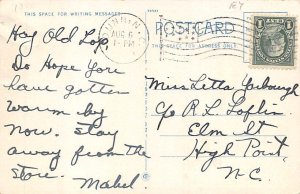 THIS SPACE FOR WRITING MESSAGES
POSTCARD
THIS SPACE FOR ADDRESS ONLY
AUG 6
1-PM
1 CENT 1
Hay Old Lop,
Do Hope you
have gotten
warm by
now. stay
away from the
store.
Mabel
Miss Letta Yarbough
c/o R. L. Loflin
Elm St
High Point,
N.C.